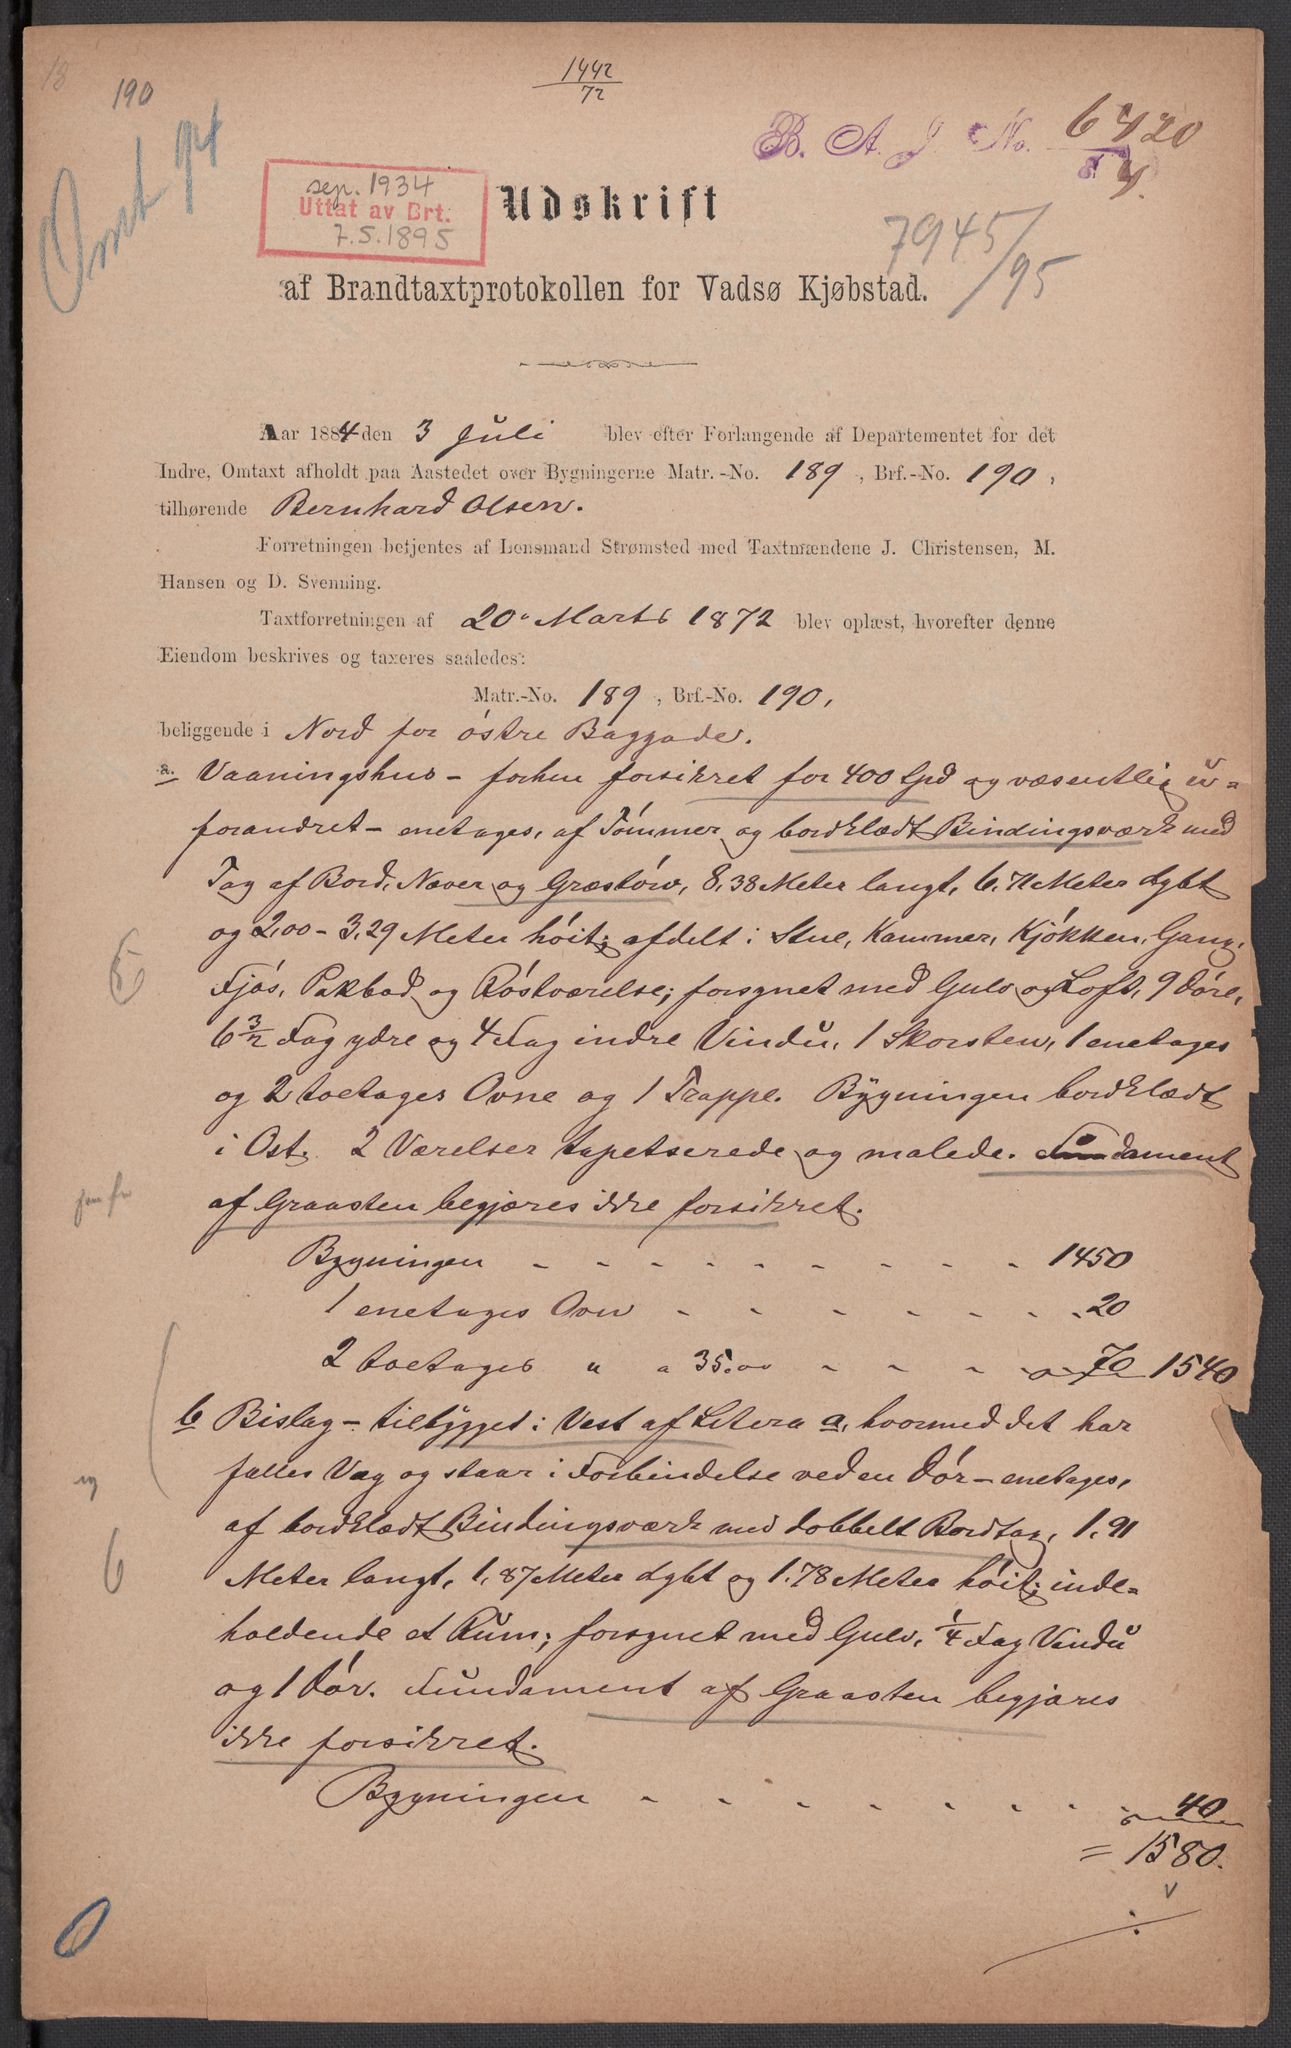 18
190
1442
72
Omt 94
B. A. J. No. 6420
84.
sep. 1934
Uttat av Brt.
7.5.1895
Udskrift
7945/95
af Brandtaxtprotokollen for Vadsø Kjøbstad.
Aar 1884 den 3 Juli blev efter Forlangende af Departementet for det
Indre, Omtaxt afholdt paa Aastedet over Bygningerne Matr.-No. 189, Brf.-No. 190,
tilhørende Bernhard Olsen.
Forretningen betjentes af Lensmand Strømsted med Taxtmændene J. Christensen, M.
Hansen og D. Svenning.
Taxtforretningen af 20' Marts 1872 blev oplæst, hvorefter denne
Eiendom beskrives og taxeres saaledes:
Matr.-No. 189, Brf.-No. 190,
beliggende i Nord for østre Baggade.
a. Vaaningshus – forhen forsikret for 400 Spd og væsentlig u=
forandret – enetages, af Tømmer og bordklædt Bindingsværk med
Tag af Bord, Næver og Græstørv, 8,38 Meter langt, 6,71 Meter dybt
og 2,00 – 3,29 Meter høit; afdelt i Stue, Kammer, Kjøkken, Gang,
5
Fjøs, Pakbod og Røstværelse; forsynet med Gulv og Loft, 9 Døre,
6 3/2 Fag ydre og 4 Fag indre Vindu, 1 Skorsten, 1 enetages
og 2 toetages Ovne og 1 Trappe. Bygningen bordklædt
i Øst. 2 Værelser tapetserede og malede. Fundament
af Graasten begjæres ikke forsikret.
Bygningen - - - - - - - - - 1450
1 enetages Ovn - - - - - - 20
2 toetages " a 35.00 - - - - 70 1540
b Bislag – tilbygget i Vest af Litera a, hvormed det har
og
fælles Væg og staar i Forbindelse ved en Dør – enetages,
af bordklædt Bindingsværk med dobbelt Bordtag, 1,91
6
Meter langt, 1,87 Meter dybt og 1,78 Meter høit; inde=
holdende et Rum; forsynet med Gulv, 1/4 Fag Vindu
og 1 Dør. Fundament af Graasten begjæres
ikke forsikret.
Bygningen - - - - - - - - 40
= 1580.
0